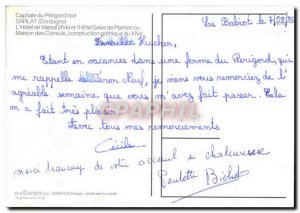 Capitale du Périgord noir
SARLAT (Dordogne)
L'Hôtel de Vassal (XVe) et l'Hôtel Selve de Plamon ou
Maison des Consuls, construction gothique du XIVe
Le
le 7/08/85
Étant en vacances dans une ferme du Périgord, qui
me rappelle mon Neuf, je vous remercie de l'
agréable semaine que vous m'avez fait passer. Cela
m'a fait très plaisir
Avec tous mes remerciements
Cécile
merci beaucoup de votre accueil si chaleureux
Paulette